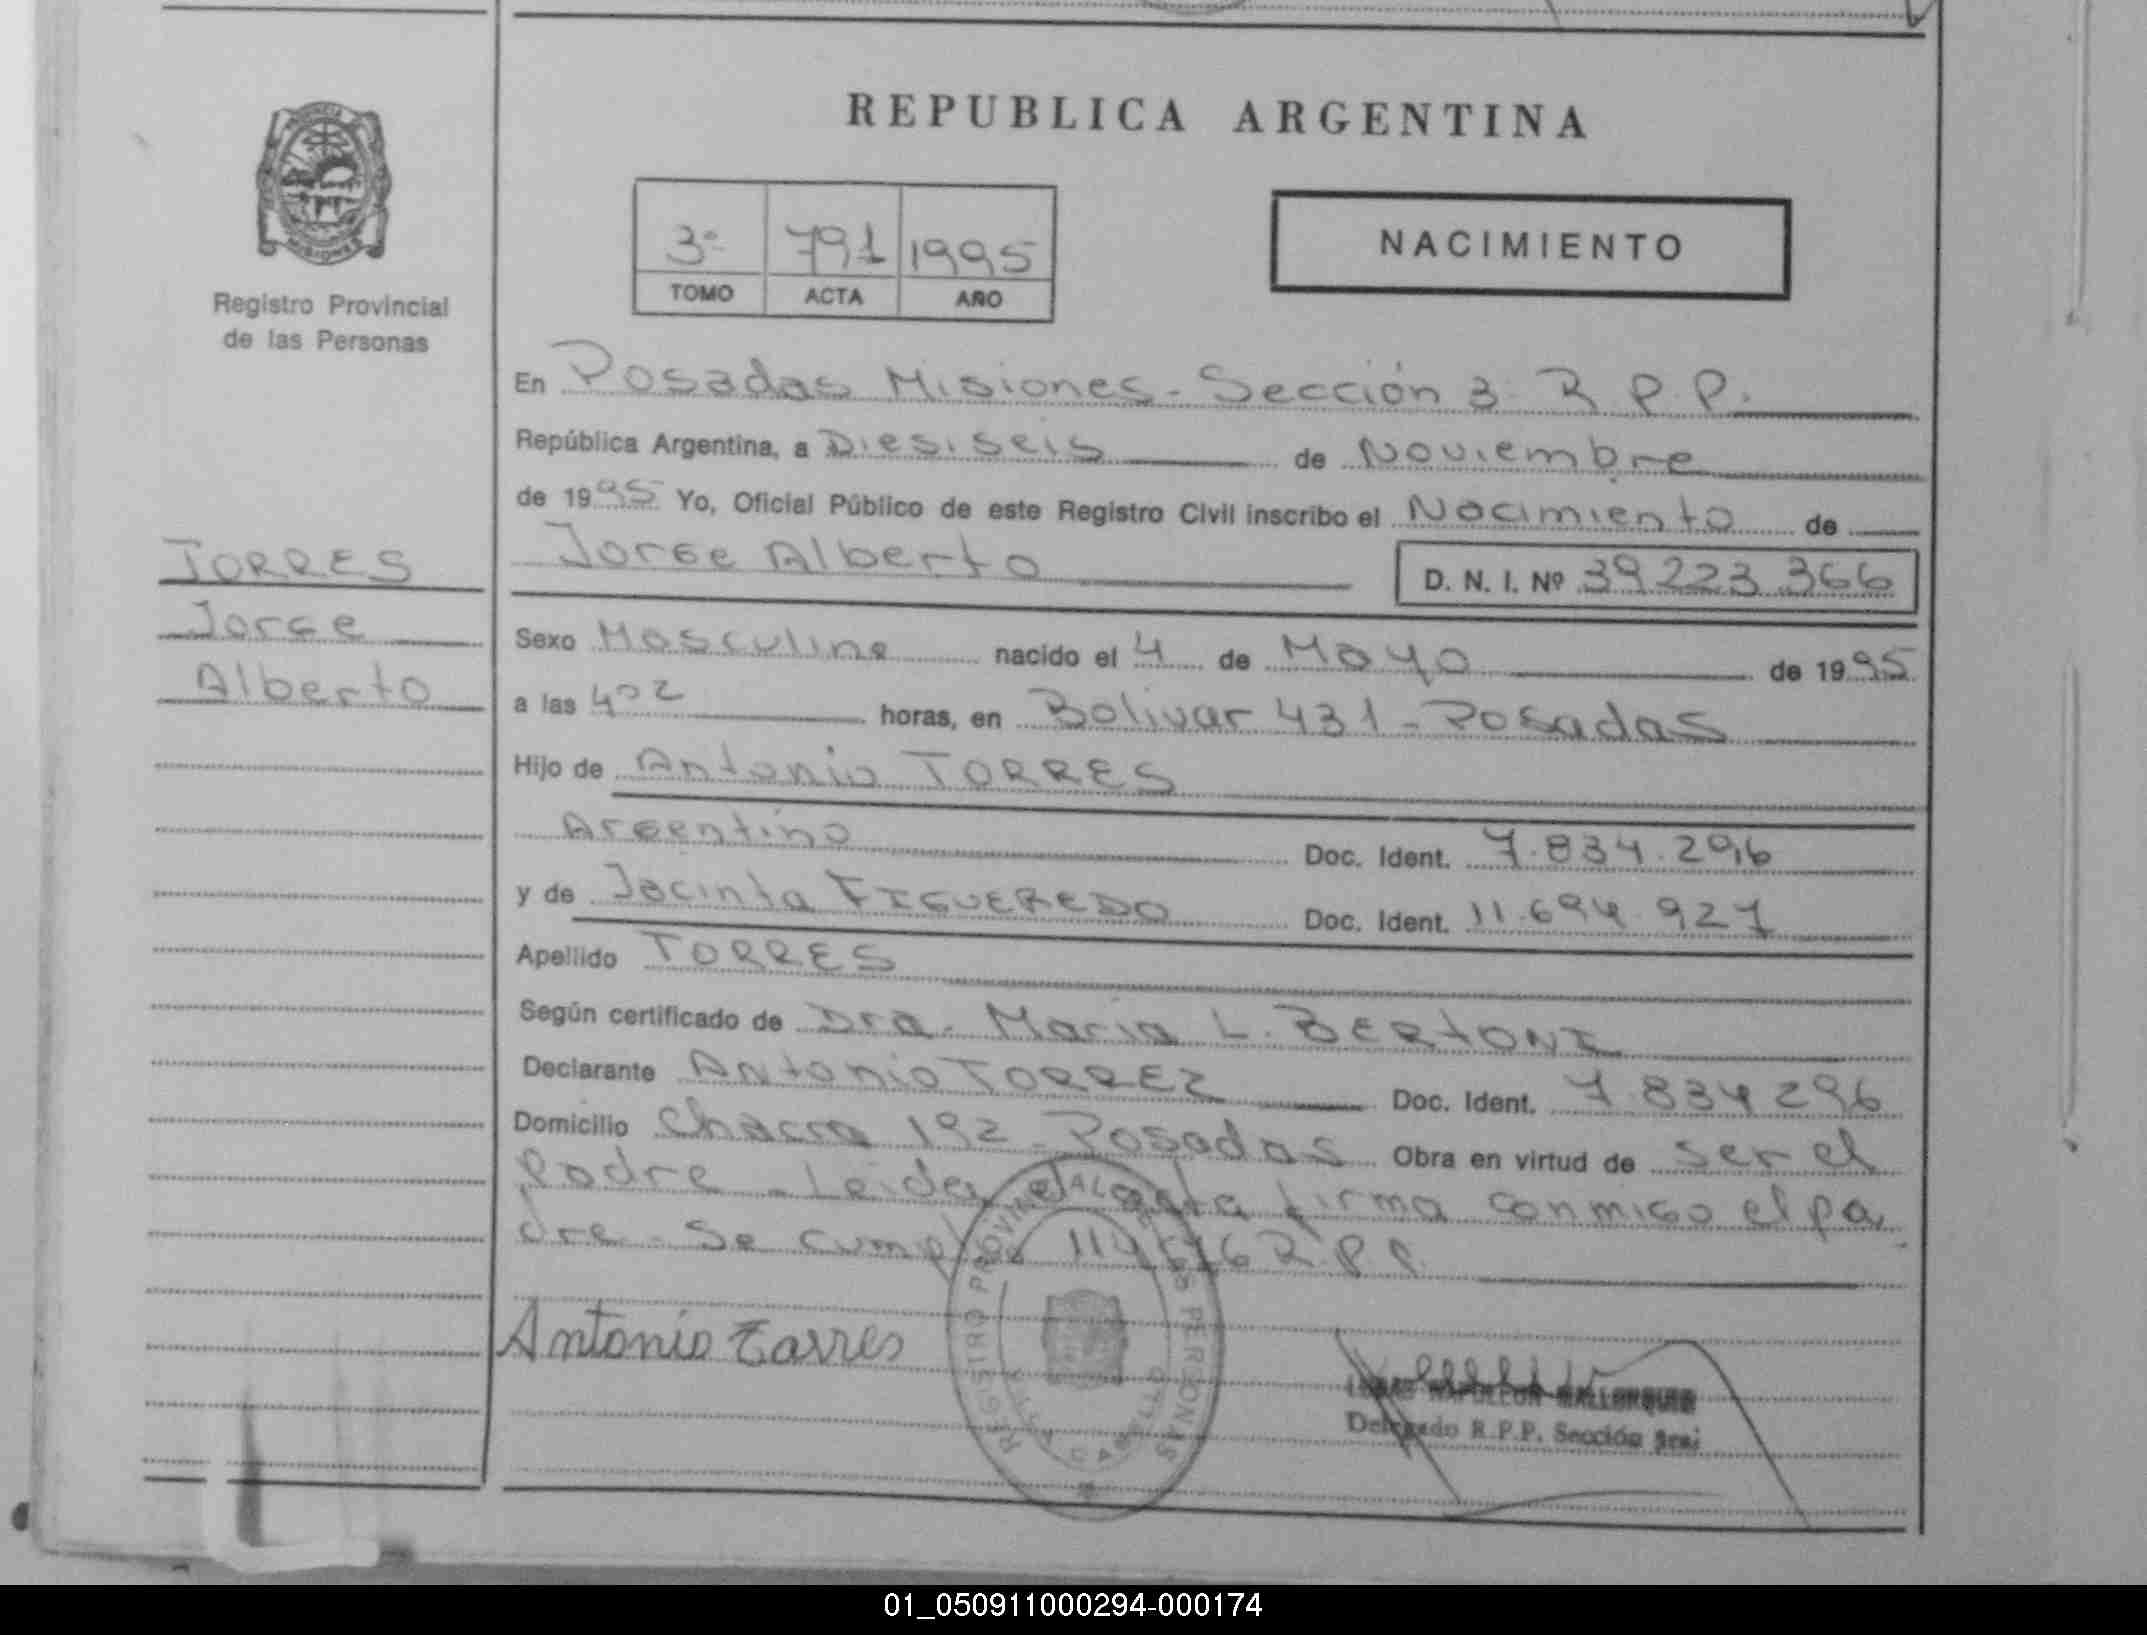 REPUBLICA ARGENTINA
3º 791 1995
TOMO ACTA AÑO
NACIMIENTO
Registro Provincial
de las Personas
TORRES
Jorge
Alberto
En Posadas Misiones - Sección 3 R.P.P.
República Argentina, a Diesiseis de Noviembre
de 1995 Yo, Oficial Público de este Registro Civil inscribo el Nacimiento de
Jorge Alberto D. N. I. Nº 39.223.366
Sexo Masculino nacido el 4 de Mayo de 1995
a las 402 horas, en Bolivar 431 - Posadas
Hijo de Antonio TORRES
Argentino Doc. Ident. 7.834.296
y de Jacinta FIGUEREDO Doc. Ident. 11.694.927
Apellido TORRES
Según certificado de Dra. Maria L. BERTONI
Declarante Antonio TORREZ Doc. Ident. 7.834296
Domicilio Chacra 192 - Posadas Obra en virtud de ser el
Padre - Leida el acta firma conmigo el pa
dre - Se cumple R.P.P.
Antonio Torres
REGISTRO PROVINCIAL DE LAS PERSONAS
VILLA CABELLO
NAPOLEON
Delegado R.P.P. Sección 3rai
01_050911000294-000174